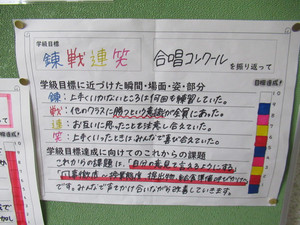 学級目標
錬戦連笑 合唱コンクールを振り返って
学級目標に近づけた瞬間・場面・姿・部分
目標達成!
錬:上手くいかないところは何回も練習していた。
戦:他のクラスに勝つという意識が全員にあった。
連:お互いに思ったことを注意し合えていた。
笑:上手くいったときはみんなで喜び合えていた。
学級目標達成に向けてのこれからの課題
これからの課題は、「自分の意見を言えるようにする」
です。みんなで声をかけ合いながら改善していきます。
10